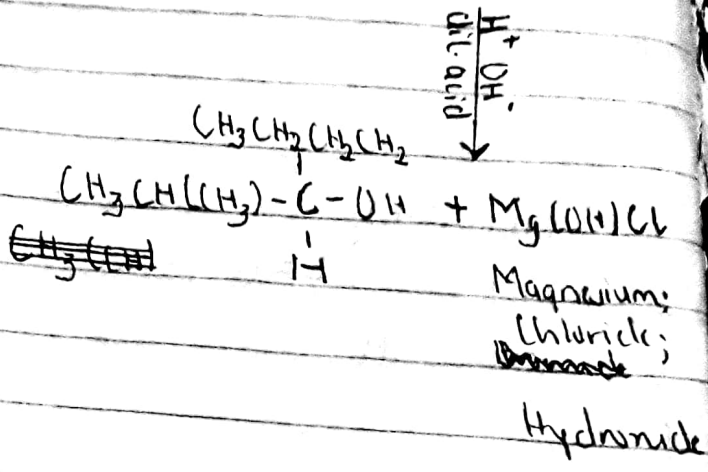 H⁺ OH⁻
dil. acid
CH₃CH₂CH₂CH₂
CH₃CH(CH₃)-C-OH + Mg(OH)Cl
H
Magnesium;
Chloride;
Hydroxide